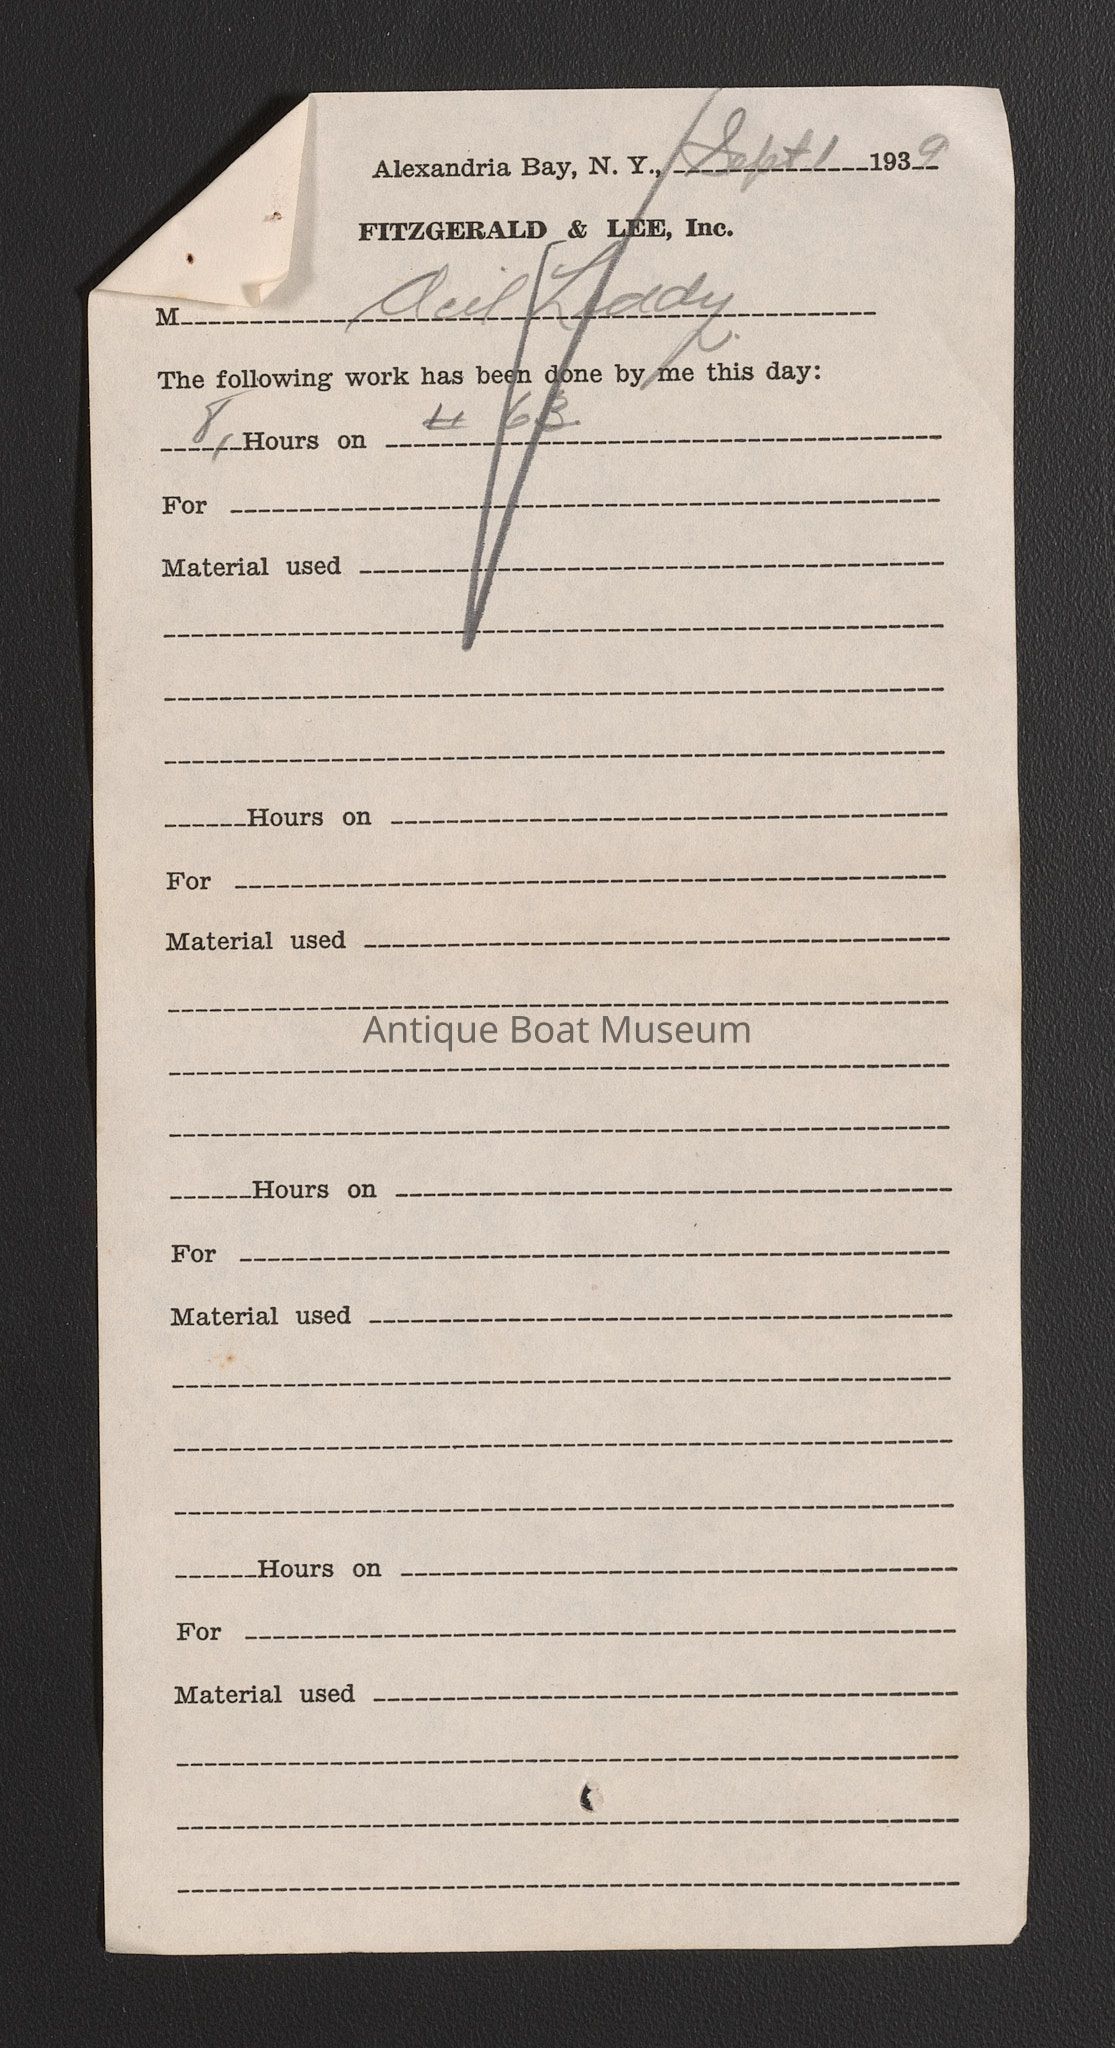 Alexandria Bay, N. Y., Sept 1 1939
FITZGERALD & LEE, Inc.
M Leddy
The following work has been done by me this day:
8, Hours on # 63
For
Material used
Hours on
For
Material used
Antique Boat Museum
Hours on
For
Material used
Hours on
For
Material used